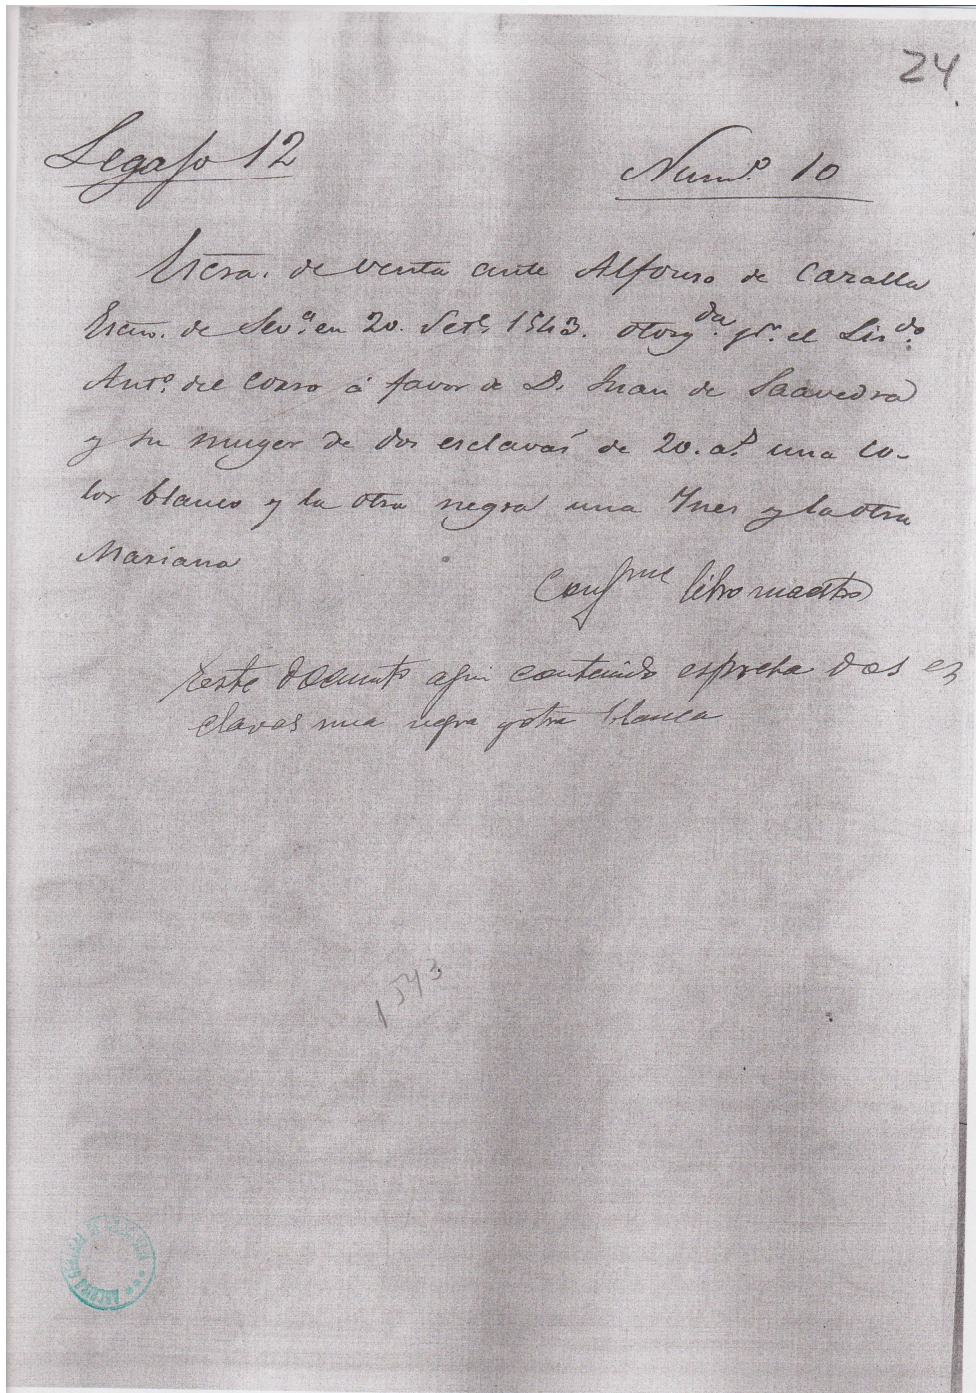 24.
Legajo 12
Num.º 10
Escra. de venta ante Alfonso de Cazalla
Escno. de Sev.ª en 20. Set.e 1543. otorg.da pr. el Lis.do
Ant.º del Corro á favor de D. Juan de Saavedra
y su muger de dos esclavas de 20. a.s una co-
lor blanco y la otra negra una Ines y la otra
Mariana
Confrme libro maestro
Este documto aqui contenido espresa dos es
clavas una negra y otra blanca
1543